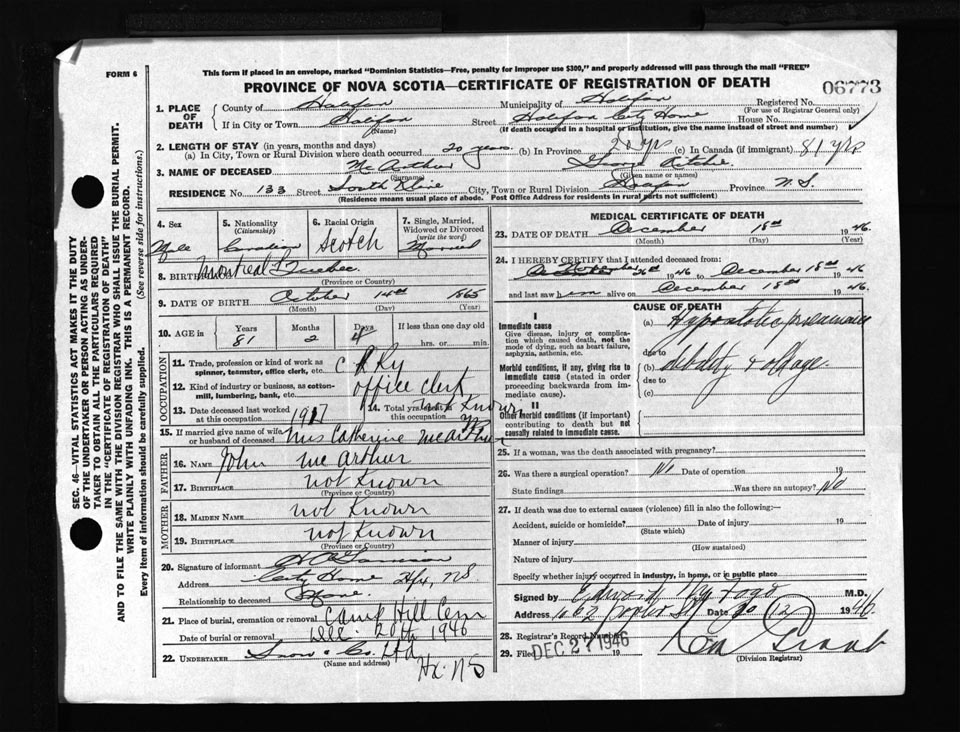 FORM 6
This form if placed in an envelope, marked "Dominion Statistics—Free, penalty for improper use $300," and properly addressed will pass through the mail "FREE"
PROVINCE OF NOVA SCOTIA—CERTIFICATE OF REGISTRATION OF DEATH
06773
SEC. 46—VITAL STATISTICS ACT MAKES IT THE DUTY
OF THE UNDERTAKER OR PERSON ACTING AS UNDER-
TAKER TO OBTAIN ALL THE PARTICULARS REQUIRED
IN THE "CERTIFICATE OF REGISTRATION OF DEATH"
AND TO FILE THE SAME WITH THE DIVISION REGISTRAR WHO SHALL ISSUE THE BURIAL PERMIT.
WRITE PLAINLY WITH UNFADING INK. THIS IS A PERMANENT RECORD.
Every item of information should be carefully supplied. (See reverse side for instructions.)
1. PLACE OF DEATH
County of Halifax Municipality of Halifax Registered No.
(For use of Registrar General only)
If in City or Town Halifax Street Halifax City Home House No.
(Name) (If death occurred in a hospital or institution, give the name instead of street and number)
2. LENGTH OF STAY (in years, months and days)
(a) In City, Town or Rural Division where death occurred 20 years (b) In Province 20 yrs (c) In Canada (if immigrant) 81 yrs
3. NAME OF DECEASED McArthur George Ritchie
(Surname) (Given name or names)
RESIDENCE No. 133 Street South Kline City, Town or Rural Division Halifax Province N.S.
(Residence means usual place of abode. Post Office Address for residents in rural parts not sufficient)
4. Sex Male
5. Nationality (Citizenship) Canadian
6. Racial Origin Scotch
7. Single, Married, Widowed or Divorced (write the word) Married
8. BIRTHPLACE Montreal Quebec
(Province or Country)
9. DATE OF BIRTH October 14th 1865
(Month) (Day) (Year)
10. AGE in Years 81 Months 2 Days 4 If less than one day old
hrs. or min.
OCCUPATION
11. Trade, profession or kind of work as spinner, teamster, office clerk, etc. C R Ry
12. Kind of industry or business, as cotton-mill, lumbering, bank, etc. office clerk
13. Date deceased last worked at this occupation 1917
14. Total yrs. spent in this occupation not Known
15. If married give name of wife or husband of deceased Mrs Catherine McArthur
FATHER
16. NAME John McArthur
17. BIRTHPLACE not Known
(Province or Country)
MOTHER
18. MAIDEN NAME not Known
19. BIRTHPLACE not Known
(Province or Country)
20. Signature of informant
Address City Home Hfx, N.S.
Relationship to deceased None
21. Place of burial, cremation or removal Camp Hill Cem
Date of burial or removal Dec. 20th 1946
22. UNDERTAKER Snow & Co. Ltd
(Name and address)
Hx. N S
MEDICAL CERTIFICATE OF DEATH
23. DATE OF DEATH December 18th 1946
(Month) (Day) (Year)
24. I HEREBY CERTIFY that I attended deceased from:
26th 1946 to December 18th 1946
and last saw him alive on December 18th 1946.
CAUSE OF DEATH
I
Immediate cause
Give disease, injury or complication which caused death, not the mode of dying, such as heart failure, asphyxia, asthenia, etc.
(a) Hypostatic pneumonia
due to
Morbid conditions, if any, giving rise to immediate cause (stated in order proceeding backwards from immediate cause).
(b) debility & old age.
due to
(c)
II
Other morbid conditions (if important) contributing to death but not causally related to immediate cause.
25. If a woman, was the death associated with pregnancy?
26. Was there a surgical operation? No Date of operation 19
State findings Was there an autopsy? No
27. If death was due to external causes (violence) fill in also the following:—
Accident, suicide or homicide? Date of injury 19
(State which)
Manner of injury
(How sustained)
Nature of injury
Specify whether injury occurred in industry, in home, or in public place
Signed by M.D.
Address Date 20 12 1946
28. Registrar's Record Number
29. Filed DEC 27 1946 19
(Division Registrar)